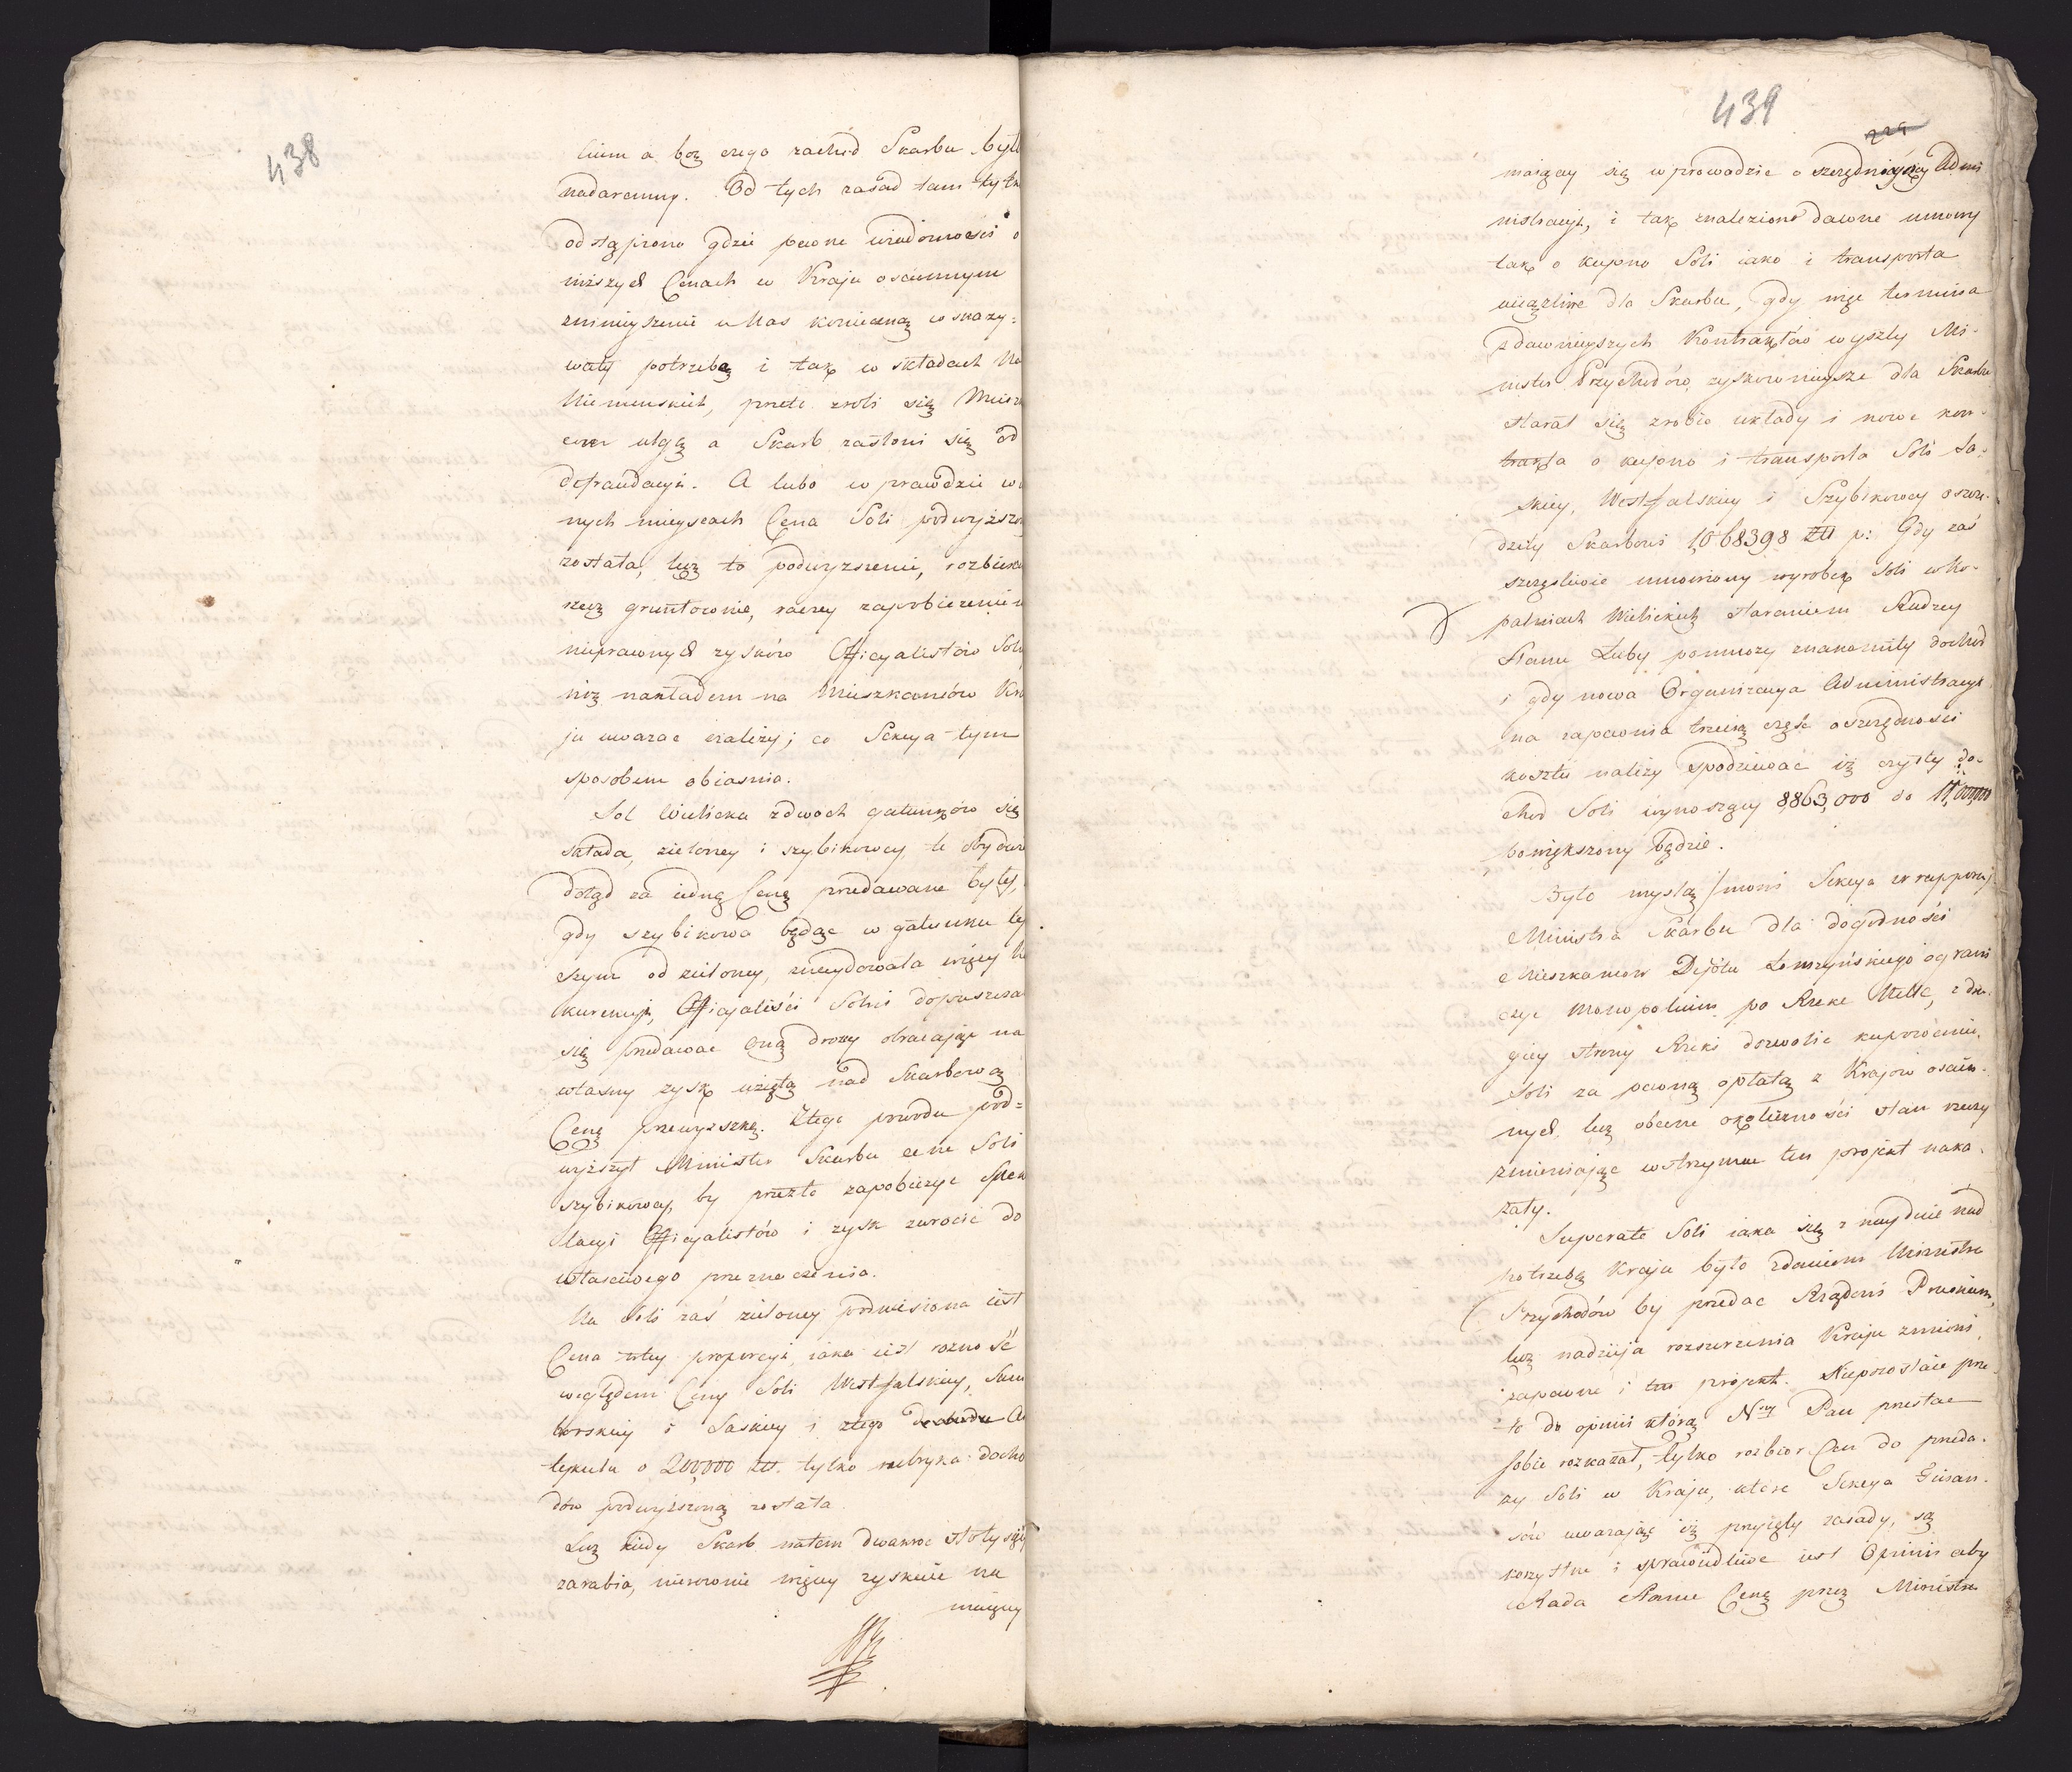 438
ciem a bez czego zachód Skarbu był
nadaremny. Od tych zasad tam tylk
odstąpiono gdzie pewne wiadomości o
niższych Cenach w Kraju osciennym
zmnieyszenie u Nas konieczną wskazy=
wały potrzebę i tak w składach Na
Niemenskich, przeto zrobi się Miesz
com ulgę a Skarb zasłoni się od
defraudacyi. A lubo w prawdzie w
nych mieyscach Cena Soli podwyższo
została, lecz to podwyższenie, rozbiera
rzecz gruntownie, raczey zapobieżenie
nieprawnych zysków Officyalistów Soln
niż nakładem na Mieszkańców Kra
ju uważac należy; co Sekcya tym
sposobem obiasnia.
Sol Wielicka z dwoch gatunków się
składa, zieloney i szybikowey, te obydwie
dotąd za iedną Cenę przedawane były,
gdy szybikowa będąc w gatunku lep
szym od zieloney, znaydowała więcey kon
kurencyi, Officyaliści Solni dopuszcza
się przedawac oną drożey obracając na
własny zysk wziętą nad Skarbową
Cenę przewyszkę. Z tego powodu pod=
wyższył Minister Skarbu cenę Soli
szybikowey, by przezto zapobieżyc speku
lacyi Officyalistów i zysk zwrocic do
własciwego przeznaczenia.
Na Soli zaś zieloney podniesiona iest
Cena w tey proporcyi, iaka iest roznosć
względem Ceny Soli Westfalskiey, Sam
borskiey i Saskiey i z tego Ar
tykułu o 200,000 Zł. tylko rubryka docho
dów podwyższoną została.
Lecz kiedy Skarb na tem dwakroc stotysięcy
zarabia, nierownie więcey zyskuie na
maiącey
439
maiącey się wprowadzic oszczędnieyszey Admi
nistracyi, i tak znalezione dawne umowy
tak o kupno Soli iako i transporta
uciążliwe dla Skarbu, gdy więc termina
z dawnieyszych Kontraktów wyszły Mi-
nister Przychodów zyskownieysze dla Skarbu
starał się zrobic układy i nowe kon-
trakta o kupno i transporta Soli Sa-
skiey, Westfalskiey i Szybikowey oszczę-
dziły Skarbowi 1068398 Zł p: Gdy zaś
szczęśliwie umowiony wyrobek Soli w Ko-
palniach Wielickich staraniem Radzcy
Stanu Łuby pomnoży znakomity dochod
i gdy nowa Organizacya Administracyi
na zapewnia trzecią częsc oszczędności
kosztu należy spodziewać iż czysty do-
chod Soli wynoszący 8863,000 do
powiększony będzie.
Było myslą /: mowi Sekcya w rapporcie
Ministra Skarbu dla dogodności
Mieszkancow Dep̃tu Łomżyńskiego ograni
czyc Monopolium po Rzekę z dru-
giey strony Rzeki dozwolic kupowanie
Soli za pewną opłatą z Krajów oscien-
nych, lecz obecne okoliczności stan rzeczy
zmieniające wstrzymac ten projekt naka-
zały.
Superate Soli iaka się znaydzie nad
potrzebę Kraju było zdaniem Ministra
Przychodów by przedac Rządowi Pruskiemu,
lecz nadzieja rozszerzenia Kraju zmieni
zapewne i ten projekt. Niepozostaie prze
to do opinii którą Nay Pan przestac
sobie rozkazał, tylko rozbior Cen do przeda-
ży Soli w Kraju, które Sekcya Finan-
sów uważając iż przyięty zasady, są
korzystne i sprawiedliwe iest Opinii aby
Rada Stanu Cenę przez Ministra